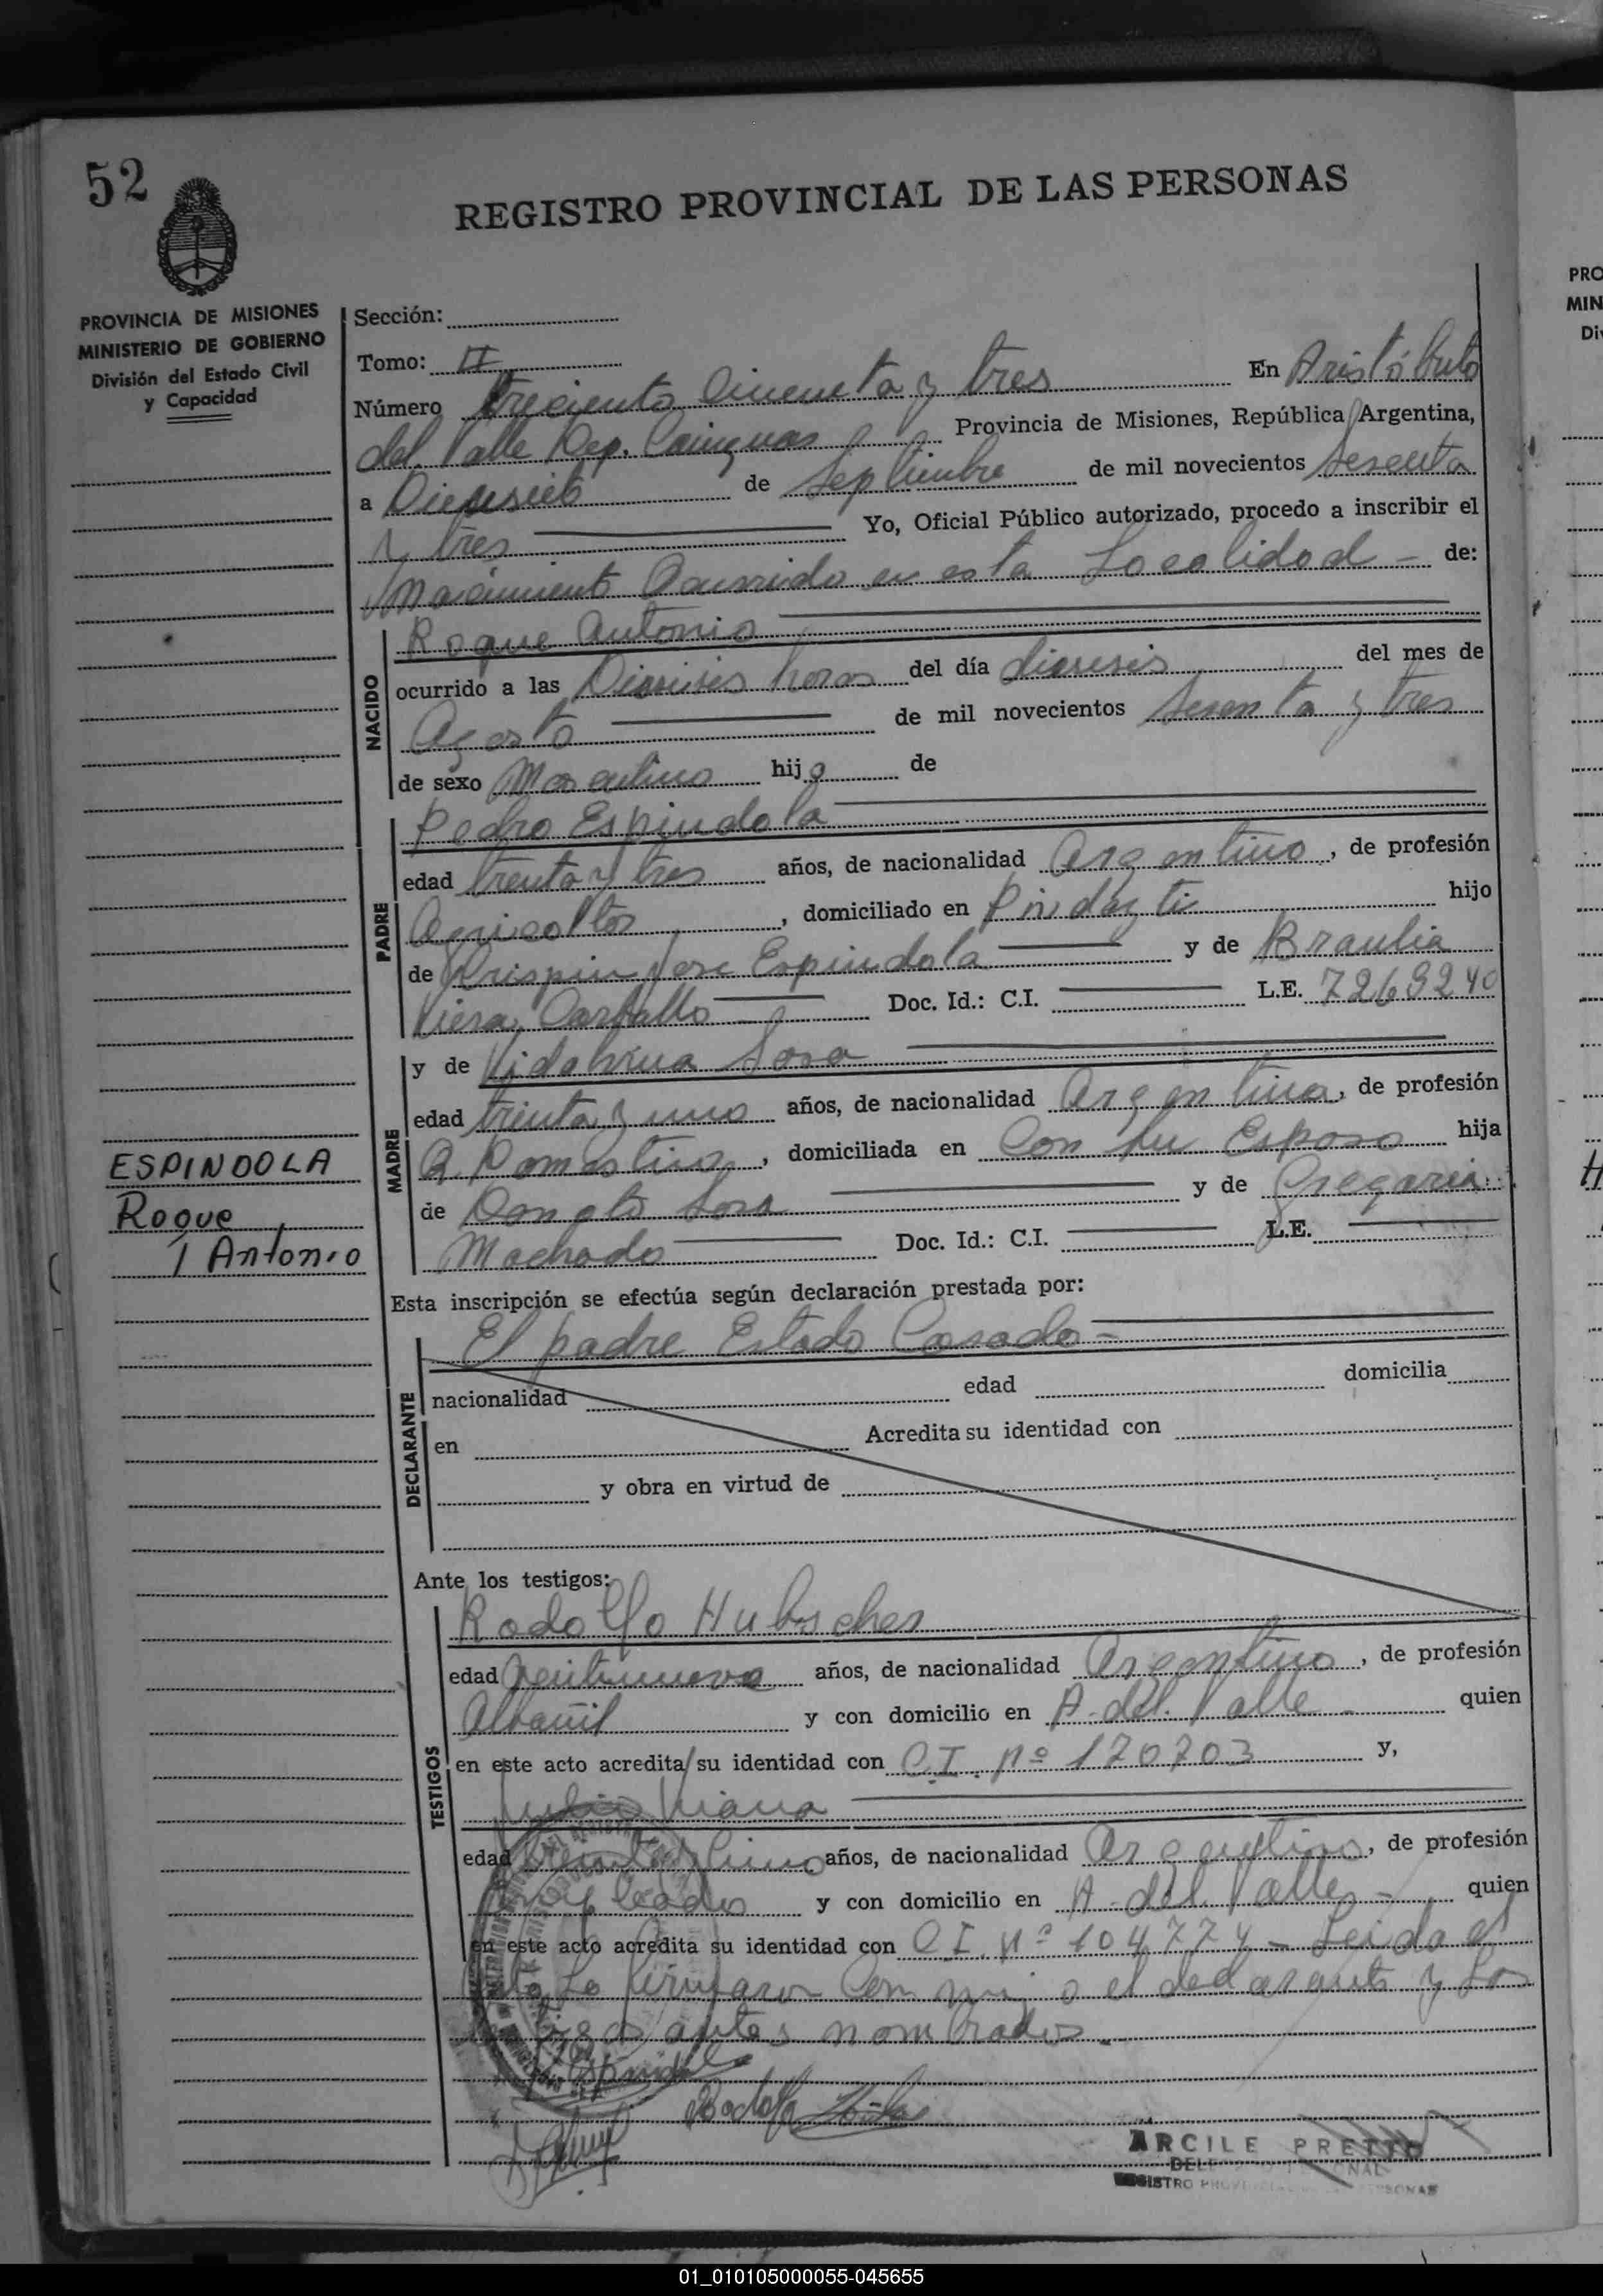 52
REGISTRO PROVINCIAL DE LAS PERSONAS
PROVINCIA DE MISIONES
MINISTERIO DE GOBIERNO
División del Estado Civil
y Capacidad
Sección:
Tomo: II
Número Treciento Cincueta y tres En Aristóbulo
del Valle Dep. Cainguas Provincia de Misiones, República Argentina,
a Diesisiete de Septiembre de mil novecientos Sesenta
y tres Yo, Oficial Público autorizado, procedo a inscribir el
Nacimiento Ocurrido en esta Localidad - de:
NACIDO
Roque Antonio
ocurrido a las Diesiseis horas del día diesiseis del mes de
Agosto de mil novecientos Sesenta y tres
de sexo Masculino hijo de
PADRE
Pedro Espindola
edad trenta y tres años, de nacionalidad Argentino, de profesión
Agricoltor, domiciliado en Pindayti hijo
de Crispin Jose Espindola y de Braulia
Viera Carballo Doc. Id.: C.I. L.E. 7269240
MADRE
y de Vidalvina Sosa
edad trinta y uno años, de nacionalidad Argentina, de profesión
Q. Domestico, domiciliada en Con su Esposo hija
de Donato Sosa y de Gregaria
Machado Doc. Id.: C.I. L.E.
ESPINDOLA
Roque
Antonio
Esta inscripción se efectúa según declaración prestada por:
El padre Estado Casado -
DECLARANTE
nacionalidad edad domicilia
en Acredita su identidad con
y obra en virtud de
Ante los testigos:
TESTIGOS
Rodolfo Hubscher
edad Veintinueve años, de nacionalidad Argentino, de profesión
Albañil y con domicilio en A. del Valle - quien
en este acto acredita su identidad con C.I. Nº 170703 y,
Julio Viana
edad años, de nacionalidad Argentino, de profesión
Empleado y con domicilio en A. del Valle - quien
en este acto acredita su identidad con C.I. Nº 104774 - Leida el
Acta Lo firmaron Con migo el declarante y Los
antes nombrados.
ARCILE PRETTO
REGISTRO
PRO
MIN
Di
H
01_010105000055-045655